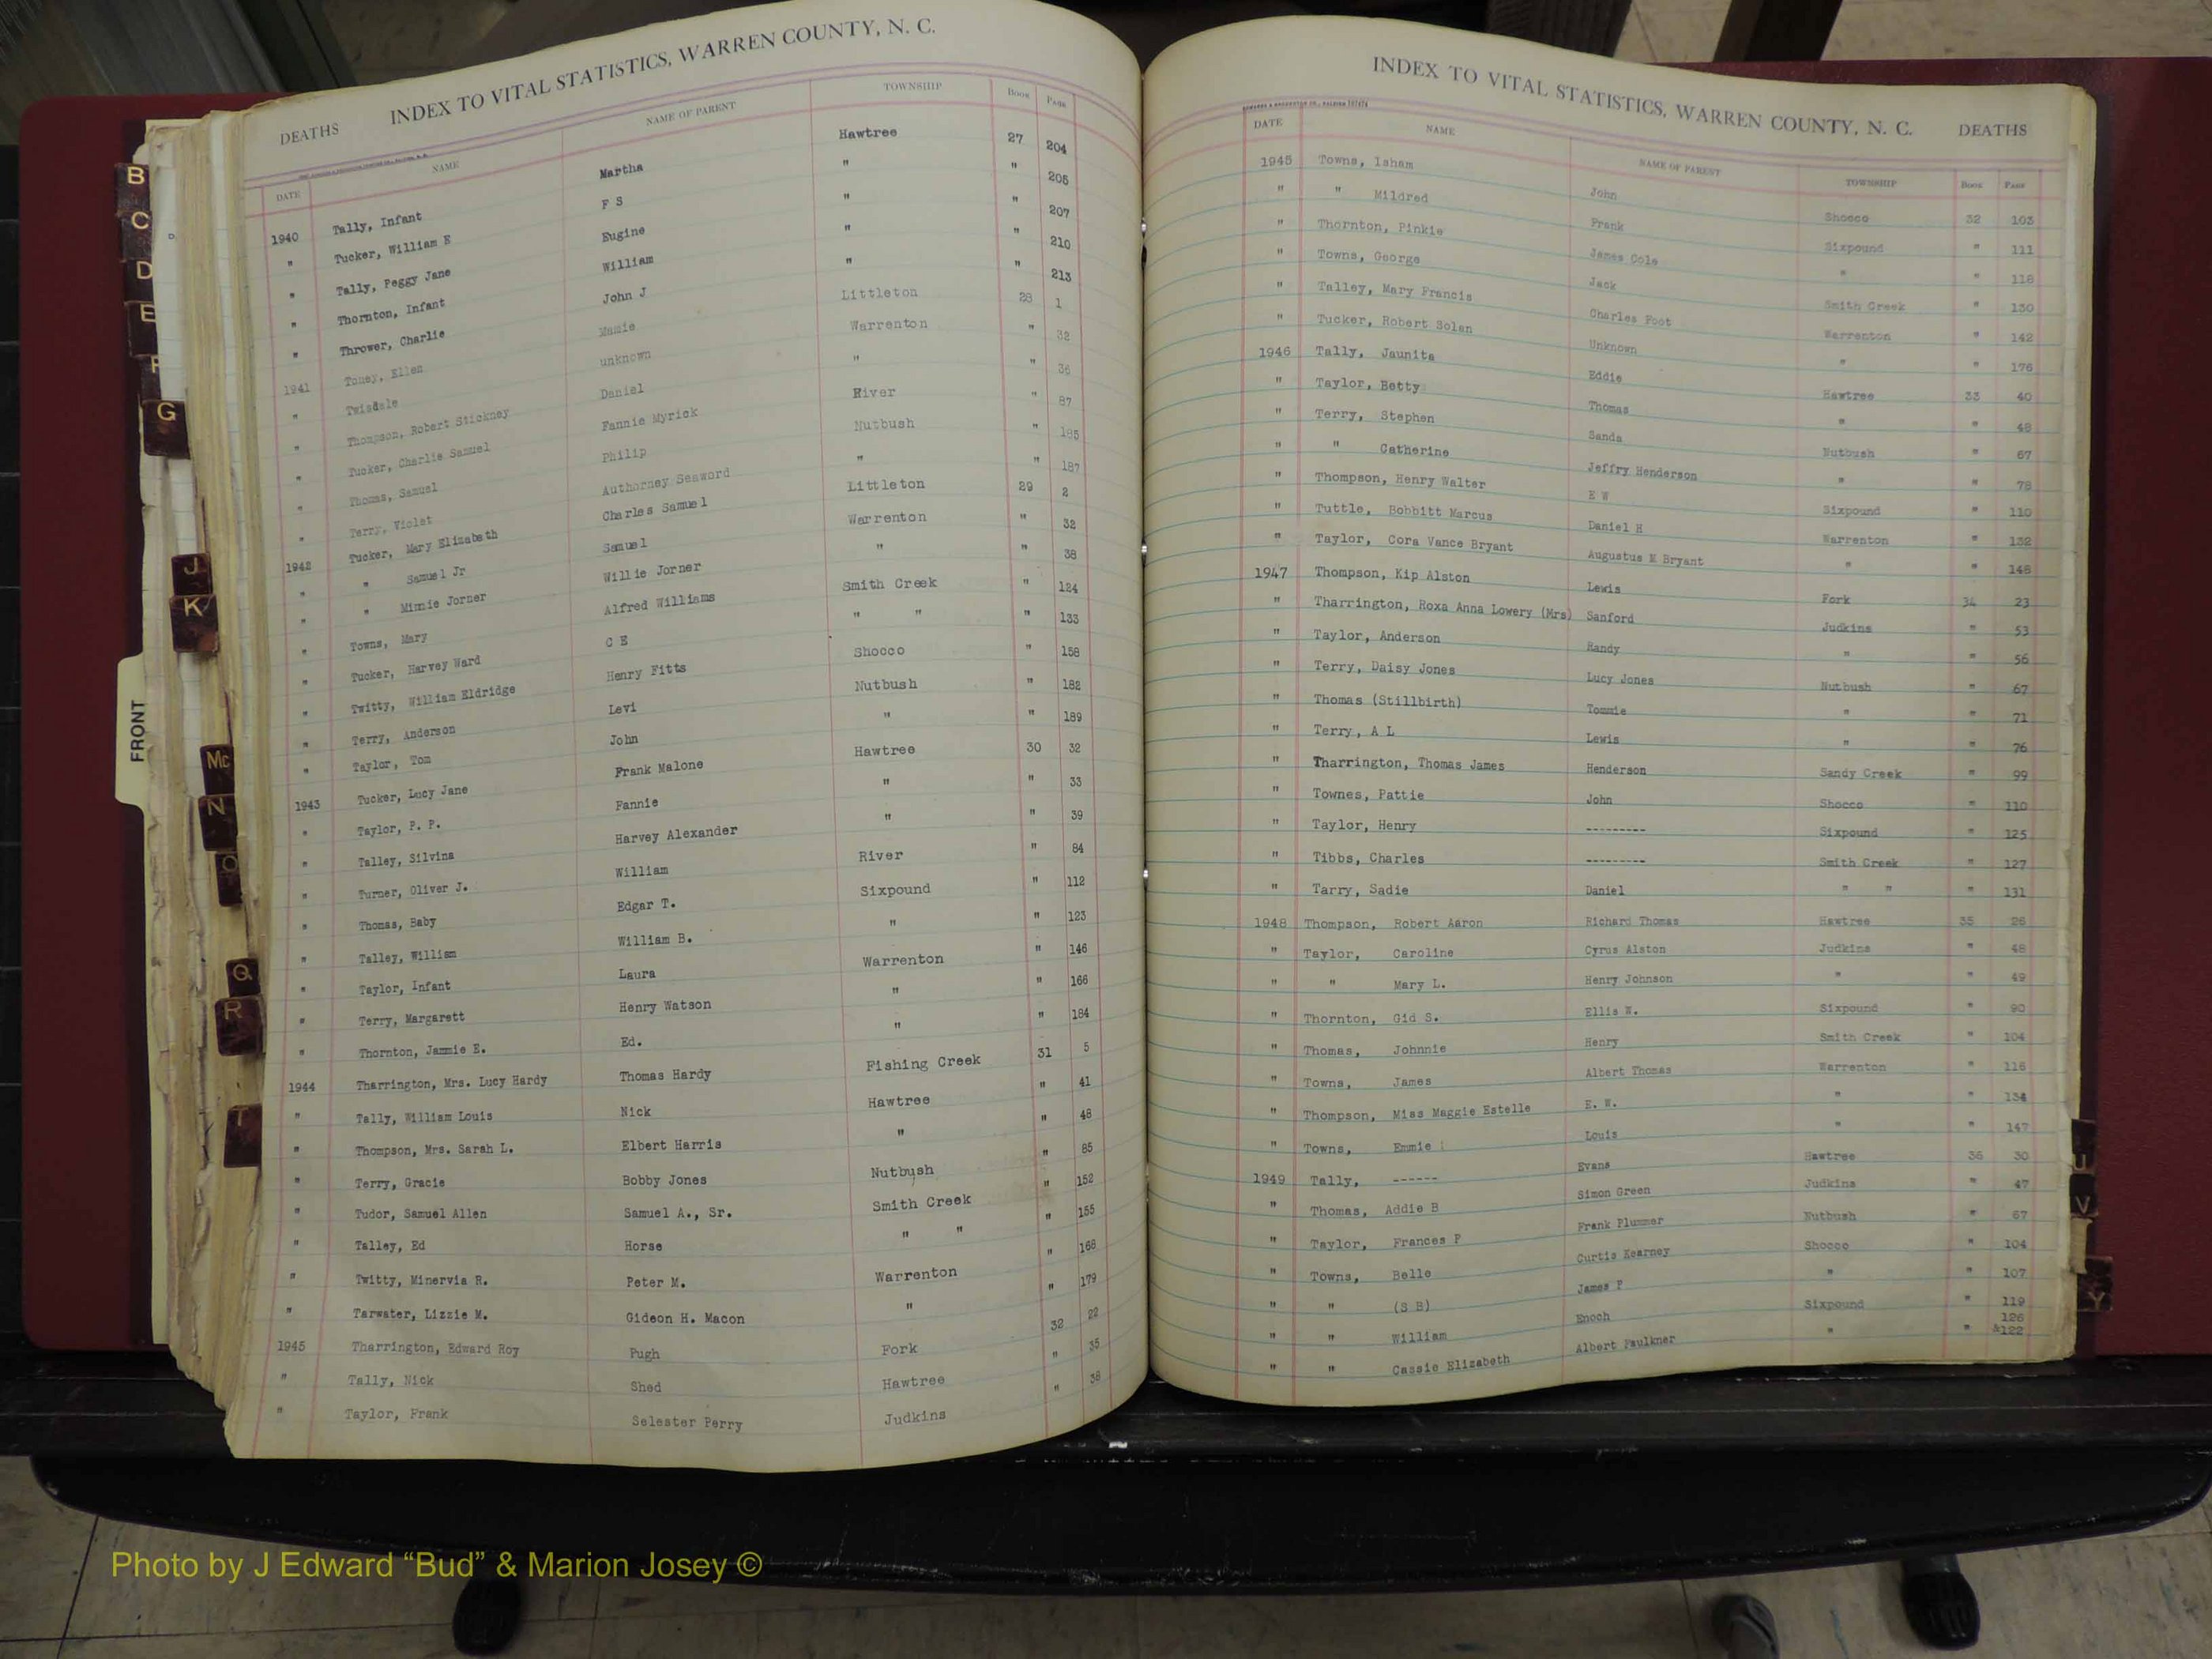 INDEX TO VITAL STATISTICS, WARREN COUNTY, N. C.
DEATHS
DATE NAME NAME OF PARENT TOWNSHIP BOOK PAGE
1940 Tally, Infant Martha Hawtree 27 204
" Tucker, William E F S " " 205
" Tally, Peggy Jane Eugine " " 207
" Thornton, Infant William " " 210
" Thrower, Charlie John J " " 213
1941 Toney, Ellen Mamie Littleton 28 1
" Twisdale unknown Warrenton " 32
" Thompson, Robert Stickney Daniel " " 36
" Tucker, Charlie Samuel Fannie Myrick River " 87
" Thomas, Samuel Philip Nutbush " 185
" Terry, Violet Authorney Seaword " " 187
1942 Tucker, Mary Elizabeth Charles Samuel Littleton 29 2
" " Samuel Jr Samuel Warrenton " 32
" " Minnie Jorner Willie Jorner " " 38
" Towns, Mary Alfred Williams Smith Creek " 124
" Tucker, Harvey Ward C E " " " 133
" Twitty, William Eldridge Henry Fitts Shocco " 158
" Terry, Anderson Levi Nutbush " 182
" Taylor, Tom John " " 189
1943 Tucker, Lucy Jane Frank Malone Hawtree 30 32
" Taylor, P. P. Fannie " " 33
" Talley, Silvina Harvey Alexander " " 39
" Turner, Oliver J. William River " 84
" Thomas, Baby Edgar T. Sixpound " 112
" Talley, William William B. " " 123
" Taylor, Infant Laura Warrenton " 146
" Terry, Margarett Henry Watson " " 166
" Thornton, Jammie E. Ed. " " 184
1944 Tharrington, Mrs. Lucy Hardy Thomas Hardy Fishing Creek 31 5
" Tally, William Louis Nick Hawtree " 41
" Thompson, Mrs. Sarah L. Elbert Harris " " 48
" Terry, Gracie Bobby Jones Nutbush " 85
" Tudor, Samuel Allen Samuel A., Sr. Smith Creek " 152
" Talley, Ed Horse " " " 155
" Twitty, Minervia R. Peter M. Warrenton " 168
" Tarwater, Lizzie M. Gideon H. Macon " " 179
1945 Tharrington, Edward Roy Pugh Fork 32 22
" Tally, Nick Shed Hawtree " 35
" Taylor, Frank Selester Perry Judkins " 38
INDEX TO VITAL STATISTICS, WARREN COUNTY, N. C. DEATHS
DATE NAME NAME OF PARENT TOWNSHIP BOOK PAGE
1945 Towns, Isham John Shocco 32 103
" " Mildred Frank Sixpound " 111
" Thornton, Pinkie James Cole " " 118
" Towns, George Jack Smith Creek " 130
" Talley, Mary Francis Charles Foot Warrenton " 142
" Tucker, Robert Solan Unknown " " 176
1946 Tally, Jaunita Eddie Hawtree 33 40
" Taylor, Betty Thomas " " 48
" Terry, Stephen Sanda Nutbush " 67
" " Catherine Jeffry Henderson " " 78
" Thompson, Henry Walter E W Sixpound " 110
" Tuttle, Bobbitt Marcus Daniel H Warrenton " 132
" Taylor, Cora Vance Bryant Augustus M Bryant " " 148
1947 Thompson, Kip Alston Lewis Fork 34 23
" Tharrington, Roxa Anna Lowery (Mrs) Sanford Judkins " 53
" Taylor, Anderson Randy " " 56
" Terry, Daisy Jones Lucy Jones Nutbush " 67
" Thomas (Stillbirth) Tommie " " 71
" Terry, A L Lewis " " 76
" Tharrington, Thomas James Henderson Sandy Creek " 99
" Townes, Pattie John Shocco " 110
" Taylor, Henry --------- Sixpound " 125
" Tibbs, Charles --------- Smith Creek " 127
" Tarry, Sadie Daniel " " " 131
1948 Thompson, Robert Aaron Richard Thomas Hawtree 35 26
" Taylor, Caroline Cyrus Alston Judkins " 48
" " Mary L. Henry Johnson " " 49
" Thornton, Gid S. Ellis W. Sixpound " 90
" Thomas, Johnnie Henry Smith Creek " 104
" Towns, James Albert Thomas Warrenton " 116
" Thompson, Miss Maggie Estelle E. W. " " 134
" Towns, Emmie Louis " " 147
1949 Tally, ------ Evans Hawtree 36 30
" Thomas, Addie B Simon Green Judkins " 47
" Taylor, Frances P Frank Plummer Nutbush " 67
" Towns, Belle Curtis Kearney Shocco " 104
" " (S B) James P " " 107
" " William Enoch Sixpound " 119
" " Cassie Elizabeth Albert Faulkner " " 126
&122
B
C
D
E
F
G
J
K
Mc
N
O
Q
R
T
U
V
Y
FRONT
Photo by J Edward “Bud” & Marion Josey ©